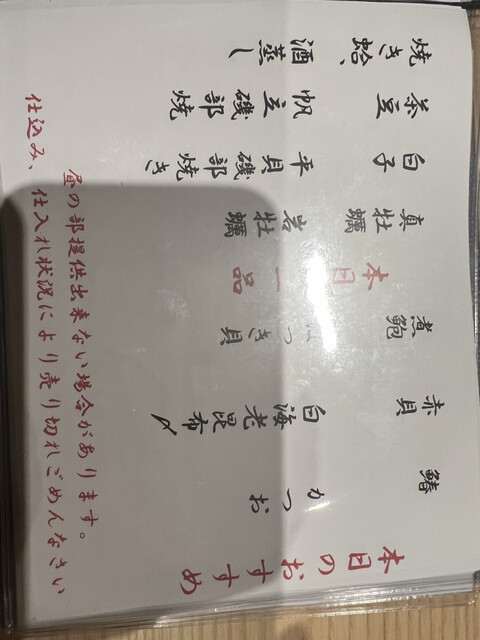 本日のおすすめ
鰆
かつお
赤貝
白海老昆布〆
煮鮑
ほっき貝
本日一品
真牡蠣
岩牡蠣
白子
平貝磯部焼き
茶豆
帆立磯部焼
焼き蛤、
酒蒸し
昼の部提供出来ない場合があります。
仕込み、仕入れ状況により売り切れごめんなさい